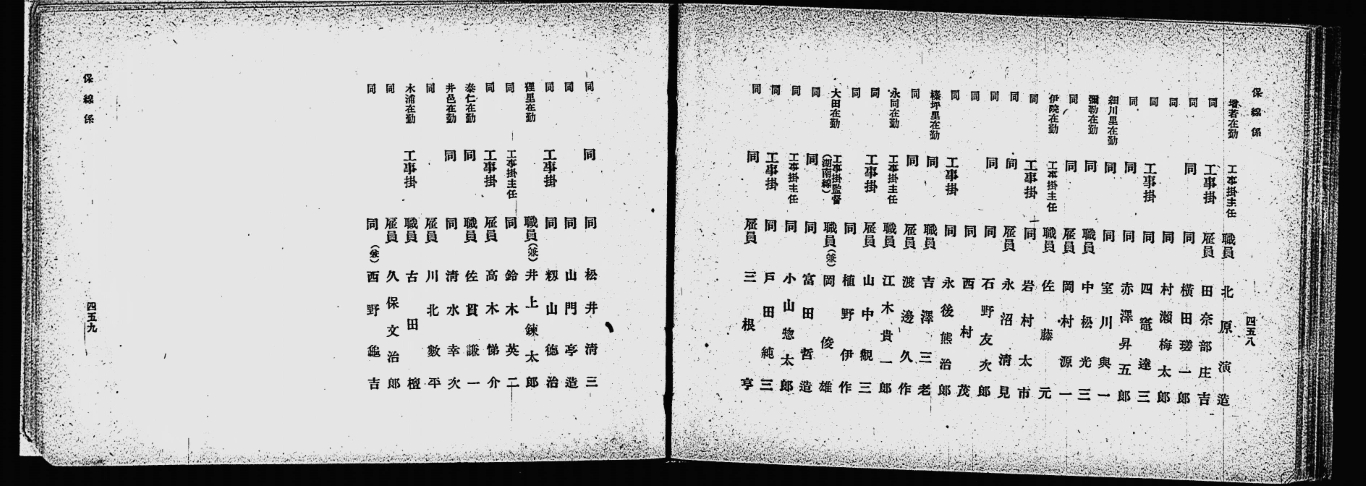 保線係
四五八
増若在勤 工事掛主任 職員 北原演造
同 工事掛 雇員 田奈部庄吉
同 同 同 横田瑳一郎
同 同 村瀬梅太郎
同 工事掛 同 四竈達三
同 同 同 赤澤昇五郎
細川里在勤 同 同 室川與一
彌勒在勤 同 職員 中松光三
同 同 雇員 岡村源一
伊院在勤 工事掛主任 職員 佐藤元
同 工事掛 同 岩村太市
同 同 雇員 永沼清見
同 同 同 石野友次郎
同 同 西村茂
同 工事掛 同 永後熊治郎
棲坪里在勤 同 職員 吉澤三老
同 同 雇員 渡邊久作
永同在勤 工事掛主任 職員 江木貴一郎
同 工事掛 雇員 山中觀三
同 同 植野伊作
大田在勤 工事掛監督(湖南線) 職員(兼) 岡俊雄
同 同 同 富田哲造
同 工事掛主任 同 小山惣太郎
同 工事掛 同 戸田純三
同 同 雇員 三根亨
同 同 同 松井清三
同 同 山門亭造
同 工事掛 同 籾山德治
狸里在勤 職員(兼) 井上鍊太郎
同 工事掛主任 同 鈴木英二
同 工事掛 雇員 高木悌介
泰仁在勤 同 職員 佐貫謙一
井邑在勤 同 同 清水幸次
同 雇員 川北數平
木浦在勤 工事掛 職員 古田檀
同 雇員 久保文治郎
同 同(兼) 西野龜吉
保線係
四五九